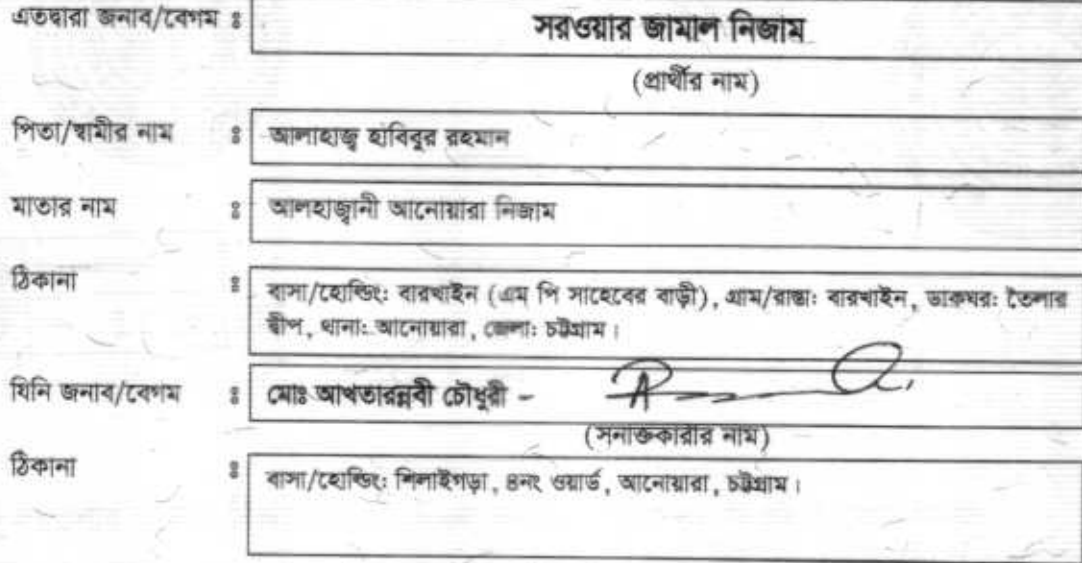 এতদ্বারা জনাব/বেগম ঃ সরওয়ার জামাল নিজাম
(প্রার্থীর নাম)
পিতা/স্বামীর নাম ঃ আলাহাজ্ব হাবিবুর রহমান
মাতার নাম ঃ আলহাজ্বানী আনোয়ারা নিজাম
ঠিকানা ঃ বাসা/হোল্ডিং: বারখাইন (এম পি সাহেবের বাড়ী), গ্রাম/রাস্তা: বারখাইন, ডাকঘর: তৈলার
দ্বীপ, থানা: আনোয়ারা, জেলা: চট্টগ্রাম।
যিনি জনাব/বেগম ঃ মোঃ আখতারন্নবী চৌধুরী -
(সনাক্তকারীর নাম)
ঠিকানা ঃ বাসা/হোল্ডিং: শিলাইগড়া, ৪নং ওয়ার্ড, আনোয়ারা, চট্টগ্রাম।